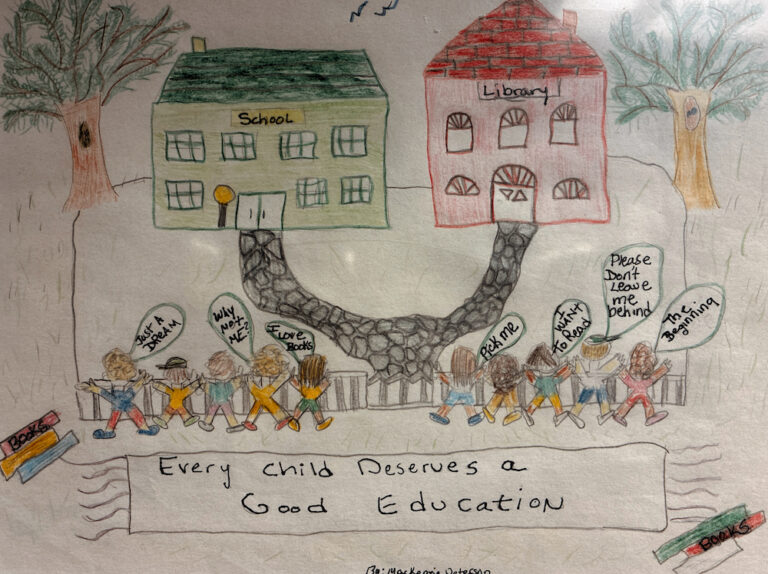 School
Library
Just A
DREAM
WHY
Not
ME?
I Love
Books
Pick me
I
WANT
To Read
Please
Don't
Leave
me
behind
The
Beginning
BOOKS
Every child Deserves a
Good Education
BOOKS